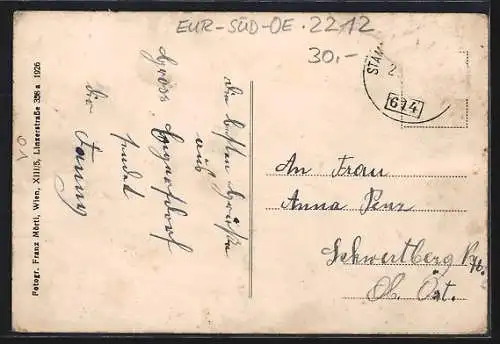 EUR-SÜD-OE. 22 12
30.-
STAM
2
614
Fotogr. Franz Mörtl, Wien, XIII/5, Linzerstraße 338 a 1926
VO
Die besten Grüße
aus
Gross Engersdorf
sendet
die Fanny
An Frau
Anna Penz
Schwertberg
Ob. Öst.